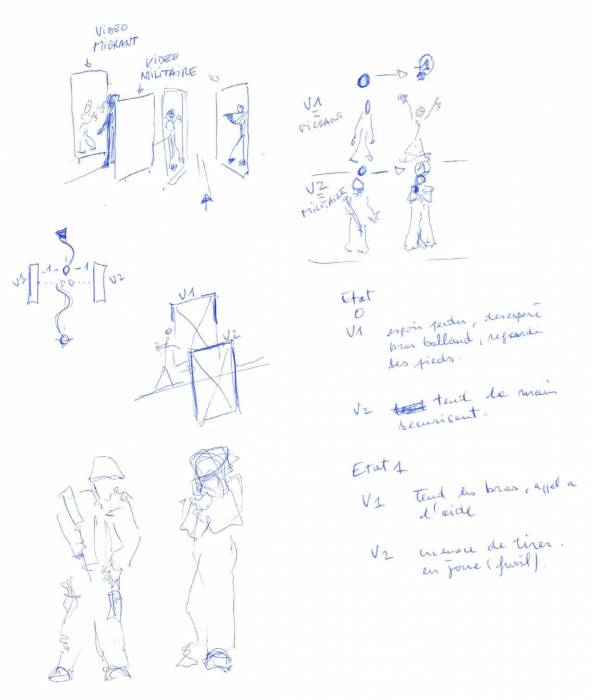 VIDÉO
MIGRANT
VIDEO
MILITAIRE
V1
=
MIGRANT
1
V2
=
MILITAIRE
1
V1
1
1
V2
V1
V2
Etat
0
V1 espoir perdu, desesperé
bras balland, regarde
ses pieds.
V2 tend la main
securisant.
Etat 1
V1 Tend les bras, appel a
l'aide
V2 menace de tirer.
en joue (fusil).